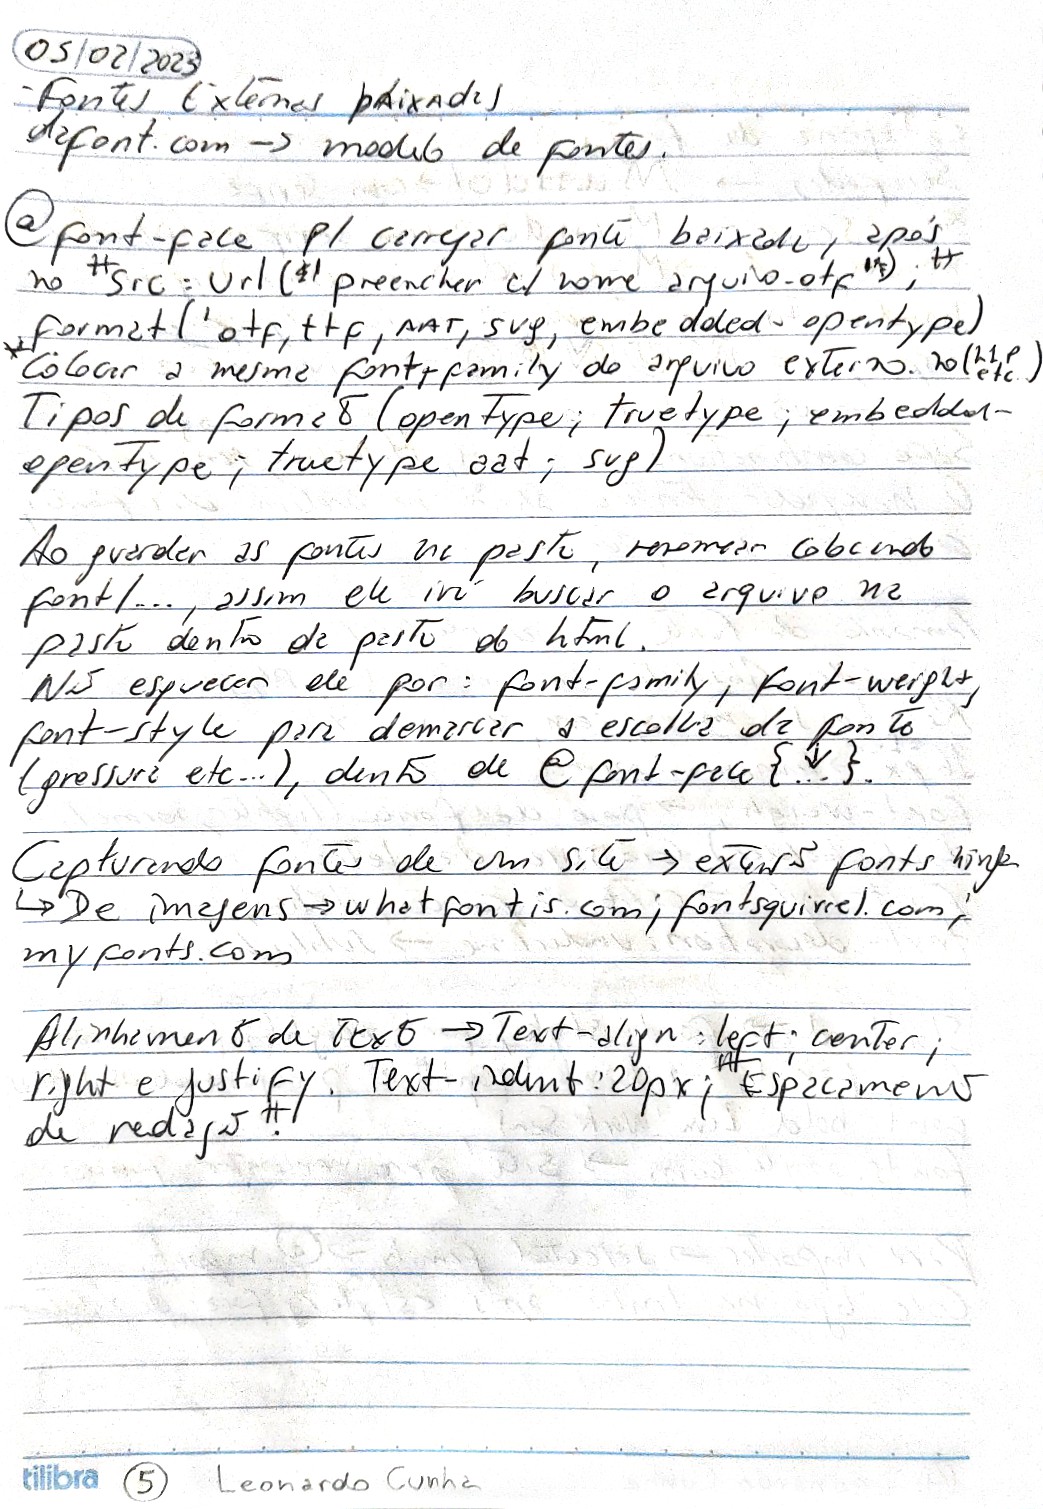 05/02/2023
- Fontes Externas baixadas
dafont.com → modelo de fontes.
@font-face p/ carregar fonte baixada, após
no "src: url('' preencher c/ nome arquivo.otf '');"
format('otf, ttf, AAT, svg, embedded-opentype)
* Colocar a mesma font-family do arquivo externo. no (h1, p etc.)
Tipos de formato (openType; truetype; embedded-
openType; truetype aat; svg)
Ao guardar as fontes na pasta, renomear colocando
font/..., assim ele irá buscar o arquivo na
pasta dentro da pasta do html.
Não esquecer de por: font-family, font-weight,
font-style para demarcar a escolha da fonte
(grossura etc...), dento de @font-face {...↓}.
Capturando fontes de um site → extensão fonts ninja
↳ De imagens → whatfontis.com; fontsquirrel.com;
myfonts.com
Alinhamento de Texto → Text-align: left; center;
right e justify. Text-indent: 20px; "Espaçamento
de redação".
tilibra (5) Leonardo Cunha